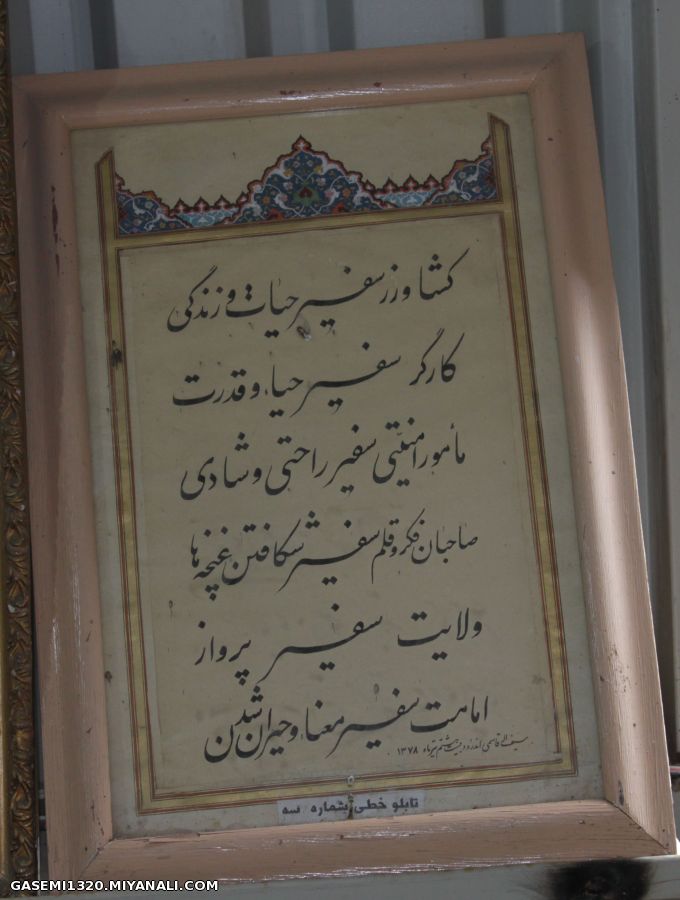 کشاورز سفیر حیات و زندگی
کارگر سفیر حیاء و قدرت
مأمور امنیتی سفیر راحتی و شادی
صاحبان فکر و قلم سفیر شکافتن غنچه ها
ولایت سفیر پرواز
امامت سفیر معنا و حیران شدن
قاسمی بیست و هشتم تیرماه ۱۳۷۸
تابلو خطی شماره سه
GASEMI1320.MIYANALI.COM